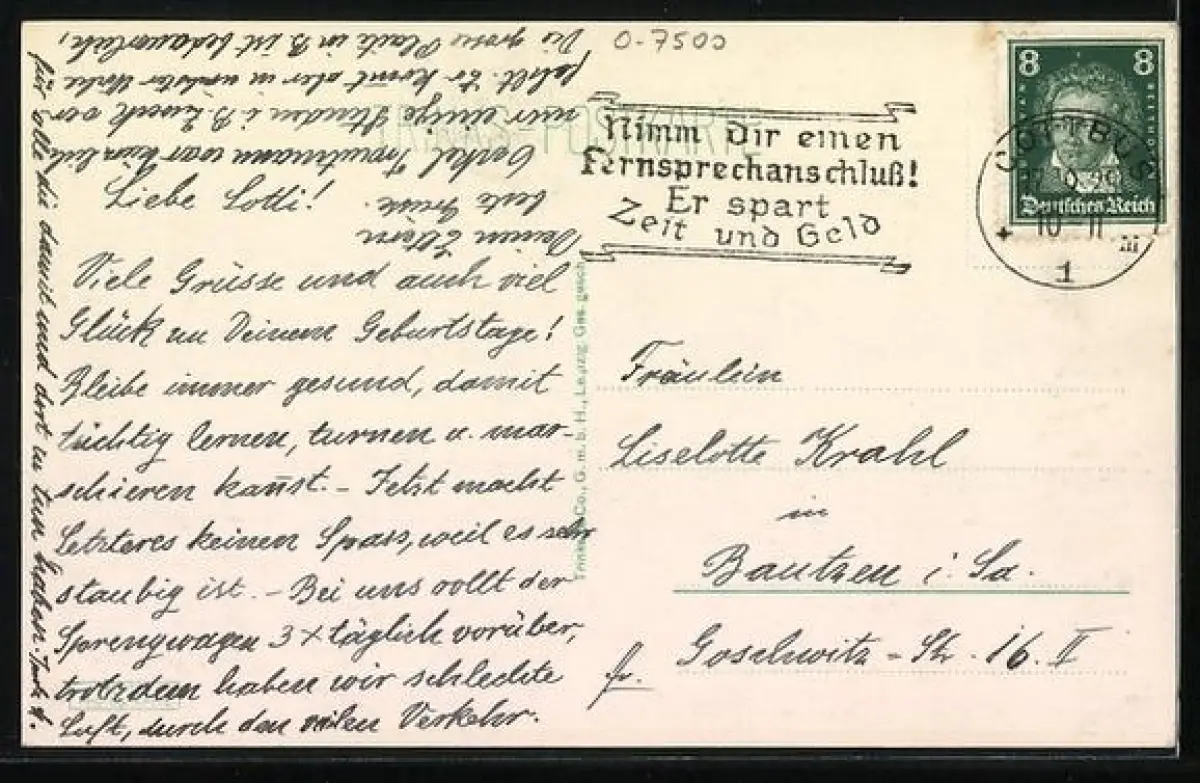 O-7500
Nimm Dir einen
Fernsprechanschluß!
Er spart
Zeit und Geld
8 8
Deutsches Reich
COTTBUS
10-11
1
Liebe Lotti!
Viele Grüsse und auch viel
Glück zu Deinem Geburtstage!
Bleibe immer gesund, damit
tüchtig lernen, turnen u. mar-
schieren kannst. - Jetzt macht
Letzteres keinen Spass, weil es sehr
staubig ist. - Bei uns rollt der
Sprengwagen 3 x täglich vorüber,
trotzdem haben wir schlechte
Luft, durch den vielen Verkehr.
Onkel Troutmann war kürzlich
nur einige Stunden i. B. zwecks
fährt. Er kommt aber in nächster Woche
Die grosse Plage in B ist bedauerlich,
für alle die damit und dort zu tun haben.
beste Grüsse
Deinen Eltern
Co., G.m.b.H., Leipzig. Ges. gesch.
Fräulein
Liselotte Krahl
in
Bautzen i. Sa.
Goschwitz-Str. 16. II
fr.